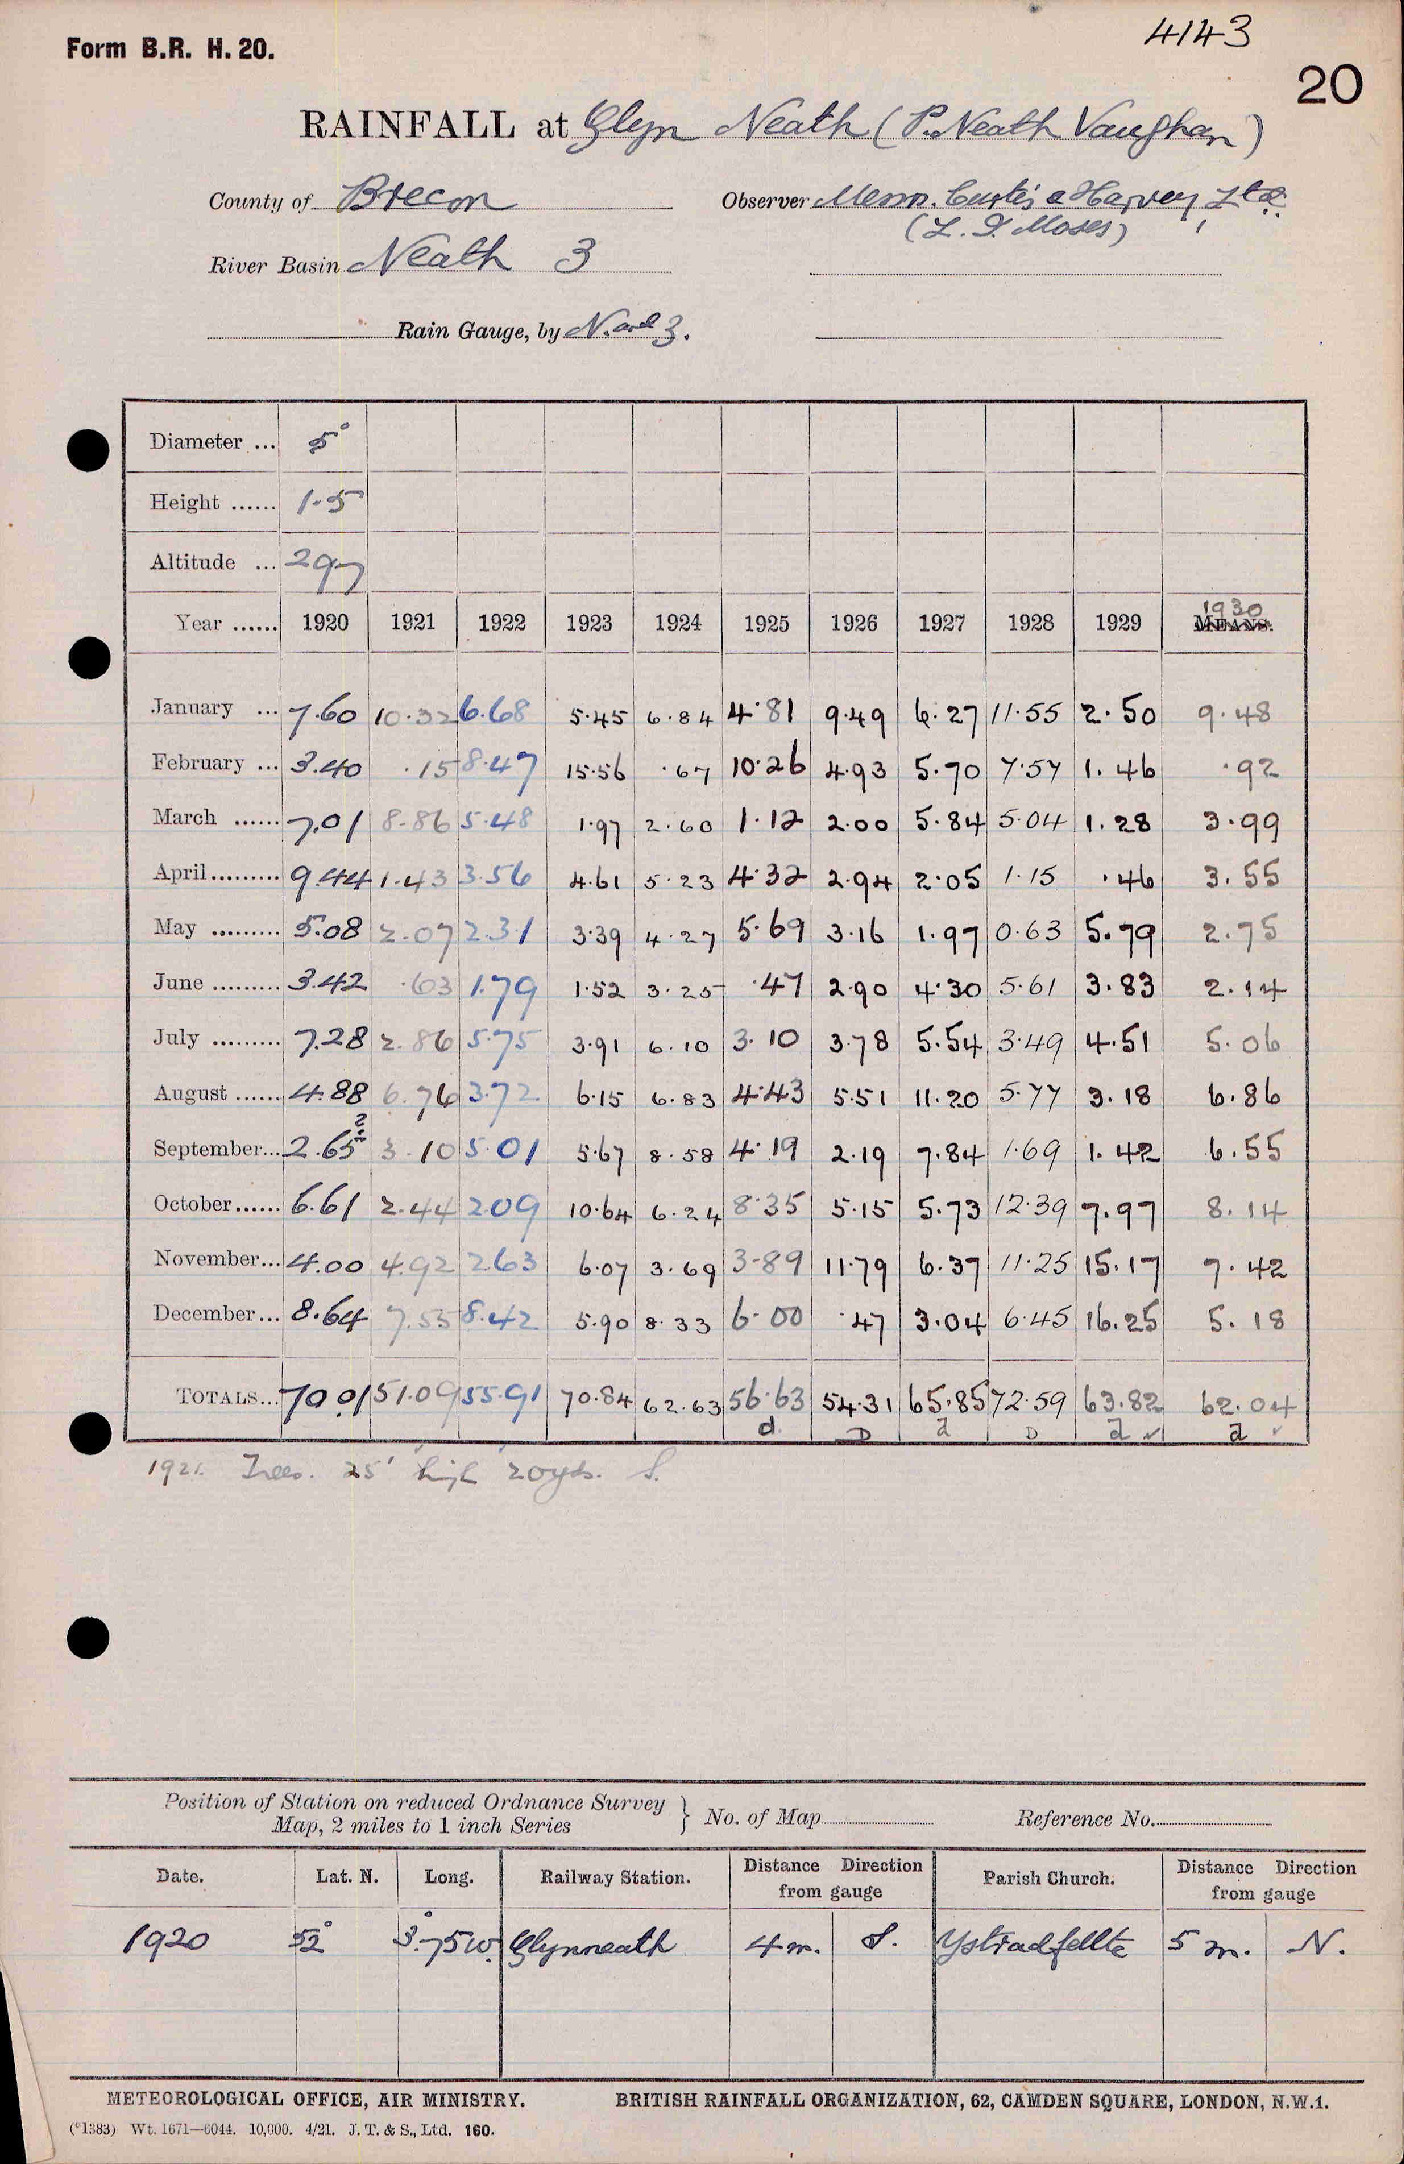 Form B.R. H. 20.
4143
20
RAINFALL at Glyn Neath (P. Neath Vaughan)
County of Brecon
Observer Messrs. Curtis & Harvey Ltd.
(L. D. Moses)
River Basin Neath 3
Rain Gauge, by N. and Z.
Diameter ... 5"
Height ...... 1.5
Altitude ... 297
Year ...... 1920 1921 1922 1923 1924 1925 1926 1927 1928 1929 1930 MEANS.
January ... 7.60 10.32 6.68 5.45 6.84 4.81 9.49 6.27 11.55 2.50 9.48
February ... 3.40 .15 8.47 15.56 .67 10.26 4.93 5.70 7.57 1.46 .92
March ...... 7.01 8.86 5.48 1.97 2.60 1.12 2.00 5.84 5.04 1.28 3.99
April ......... 9.44 1.43 3.56 4.61 5.23 4.32 2.94 2.05 1.15 .46 3.55
May ......... 5.08 2.07 2.31 3.39 4.27 5.69 3.16 1.97 0.63 5.79 2.75
June ......... 3.42 .63 1.79 1.52 3.25 .47 2.90 4.30 5.61 3.83 2.14
July ......... 7.28 2.86 5.75 3.91 6.10 3.10 3.78 5.54 3.49 4.51 5.06
August ...... 4.88 6.76 3.72 6.15 6.83 4.43 5.51 11.20 5.77 3.18 6.86
September... 2.65 3.10 5.01 5.67 8.58 4.19 2.19 7.84 1.69 1.42 6.55
October ...... 6.61 2.44 2.09 10.64 6.24 8.35 5.15 5.73 12.39 7.97 8.14
November... 4.00 4.92 2.63 6.07 3.69 3.89 11.79 6.37 11.25 15.17 7.42
December... 8.64 7.55 8.42 5.90 8.33 6.00 .47 3.04 6.45 16.25 5.18
TOTALS... 70.01 51.09 55.91 70.84 62.63 56.63 54.31 65.85 72.59 63.82 62.04
d. D d D d ✓ d ✓
1921. Trees. 25' high 20yds. S.
Position of Station on reduced Ordnance Survey
Map, 2 miles to 1 inch Series } No. of Map Reference No.
Date. Lat. N. Long. Railway Station. Distance Direction from gauge Parish Church. Distance Direction from gauge
1920 52° 3°.75W. Glynneath 4 m. S. Ystradfellte 5 m. N.
METEOROLOGICAL OFFICE, AIR MINISTRY. BRITISH RAINFALL ORGANIZATION, 62, CAMDEN SQUARE, LONDON, N.W.1.
(*1383) Wt. 1671—6044. 10,000. 4/21. J. T. & S., Ltd. 160.